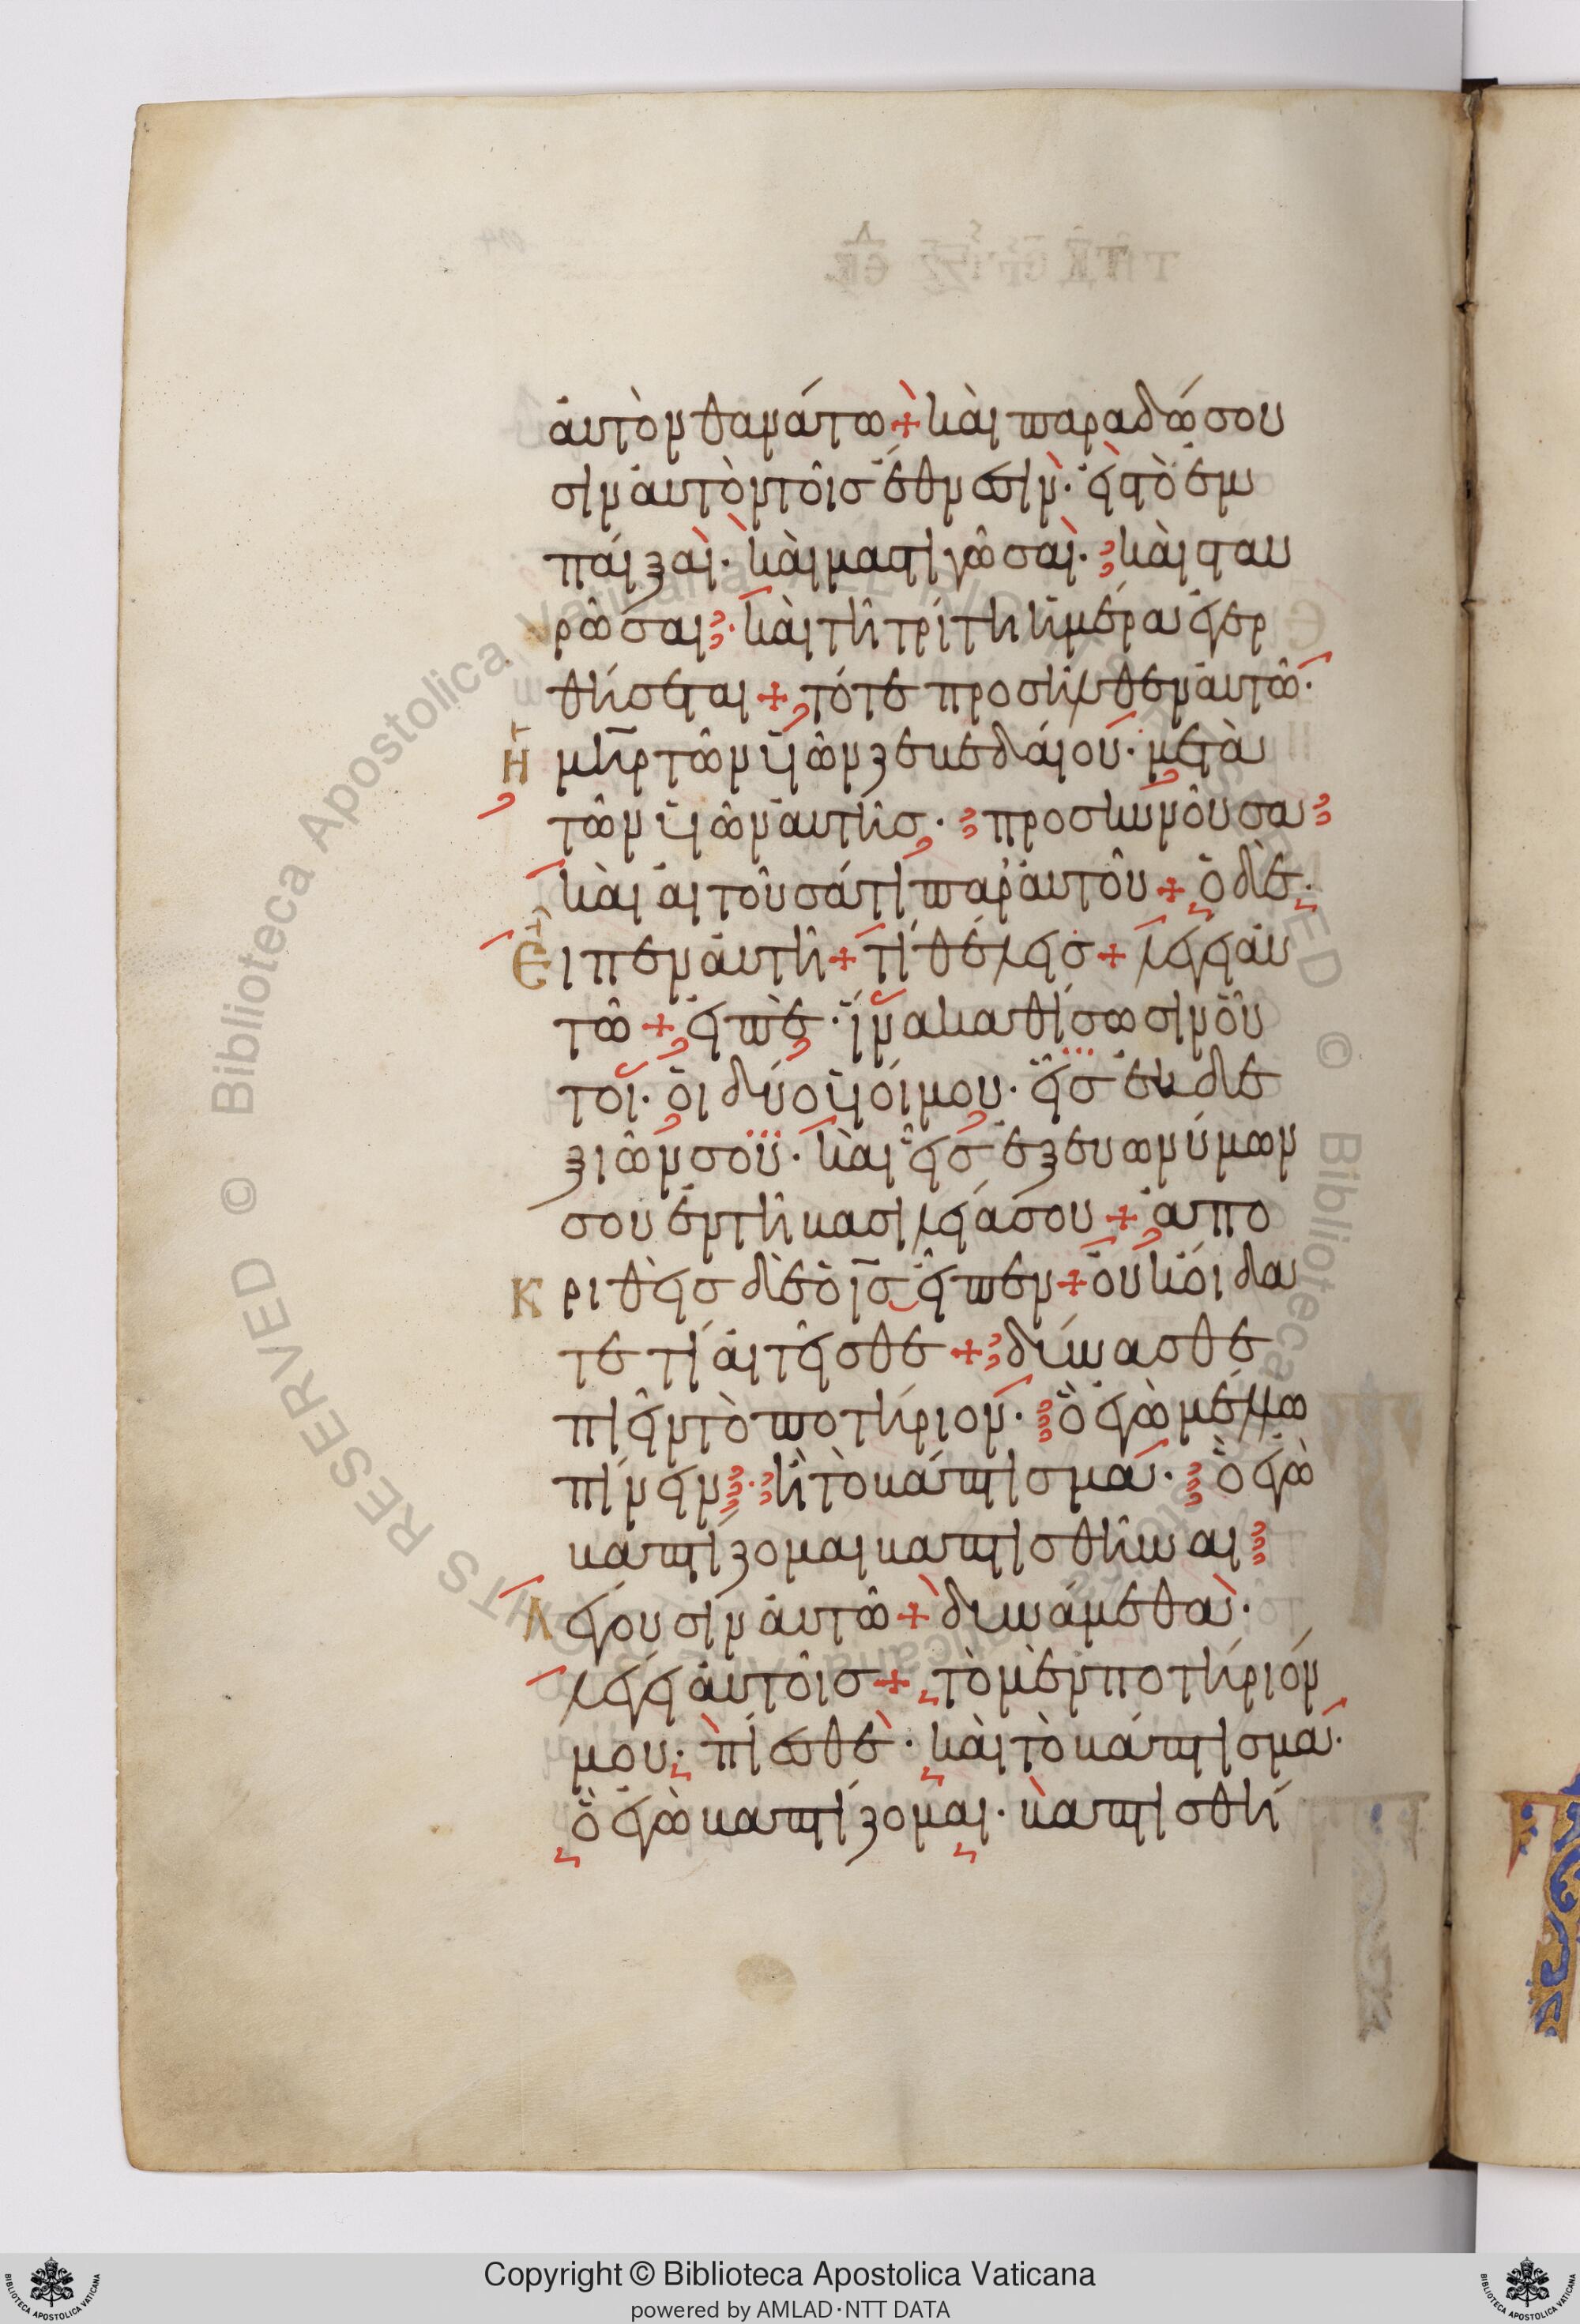 ἀυτὸν θανάτω + καὶ παραδώσου
σιν ἀυτὸν τοῖσ ἔθνεσιν· εἰσ τὸ ἐμ
πάιξαι· καὶ μαστιγῶσαι· καὶ σταυ
ρῶσαι· καὶ τῆ τρίτη ἡμέρα ἐγερ
θήσεται + τότε προσῆλθεν ἀυτῶ·
ἡ μ̅η̅ρ τῶν ὑιῶν ζεβεδάιου· μετὰ
τῶν ὑιῶν ἀυτῆσ· προσκυνοῦσα
καὶ ἀιτοῦσά τι παρ' ἀυτοῦ + ὁ δὲ·
Ειπεν ἀυτῆ + τί θέλεισ + λέγει ἀυ
τῶ + εἰπὲ· ἵνα καθίσωσιν οὗ
τοι· ὁι δύο ὑιόι μου· εἷσ ἐκ δε
ξιῶν σου· καὶ εἷσ ἐξ ευωνύμων
σου ἐν τῆ βασιλεία σου + ἀπο
Κριθεὶσ δὲ ὁ ι̅σ̅ εἶπεν + ὀυκ ὀίδα
τε τί ἀιτεῖσθε + δύνασθε
πιεῖν τὸ ποτήριον· ὃ ἐγὼ μέλλω
πίνειν· ἢ τὸ βάπτισμα· ὃ ἐγὼ
βαπτίζομαι βαπτισθῆναι
Λέγουσιν ἀυτῶ + δυνάμεθα·
λέγει ἀυτοῖσ + τὸ μὲν ποτήριόν
μου· πίεσθε· καὶ τὸ βάπτισμα·
ὃ ἐγὼ βαπτίζομαι· βαπτισθή
Copyright © Biblioteca Apostolica Vaticana
powered by AMLAD·NTT DATA